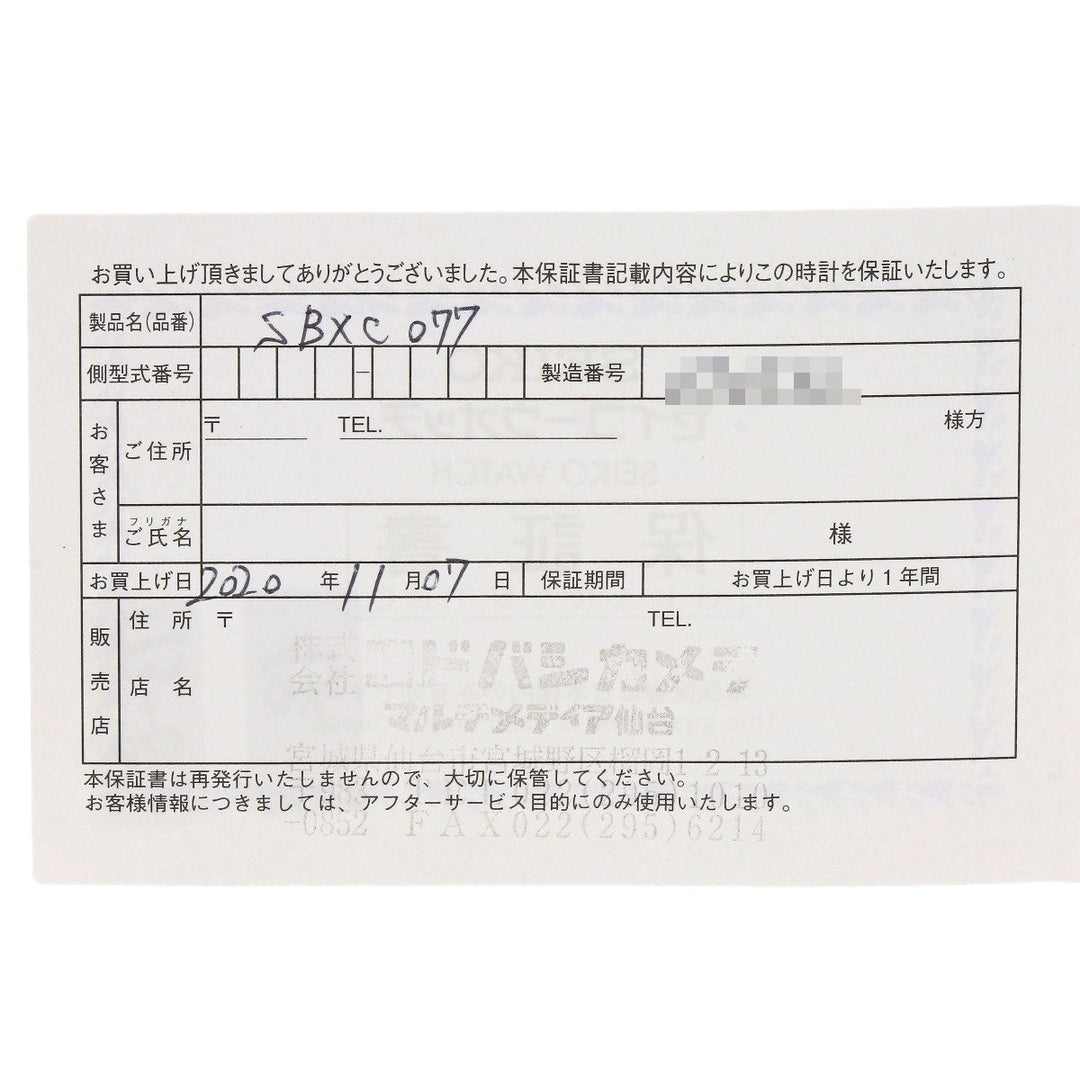 お買い上げ頂きましてありがとうございました。本保証書記載内容によりこの時計を保証いたします。
製品名(品番) SBXC077
側型式番号 － 製造番号
お客さま ご住所 〒 TEL. 様方
フリガナ
ご氏名 様
お買上げ日 2020 年 11 月 07 日 保証期間 お買上げ日より1年間
販売店 住所 〒 TEL.
店名
株式会社 ヨドバシカメラ
マルチメディア仙台
宮城県仙台市宮城野区榴岡1-2-13
022(295)1010
-0852 FAX022(295)6214
本保証書は再発行いたしませんので、大切に保管してください。
お客様情報につきましては、アフターサービス目的にのみ使用いたします。
SEIKO
セイコーウオッチ
SEIKO WATCH
保証書